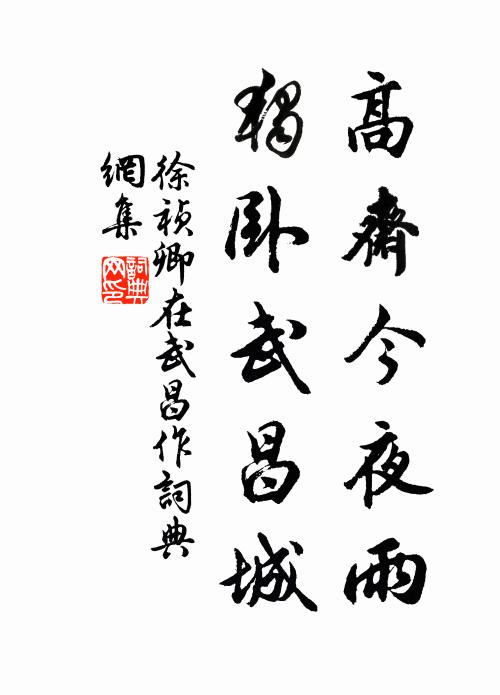 高齋今夜雨
獨臥武昌城
徐禎卿在武昌作詞典
網集
詞典網印